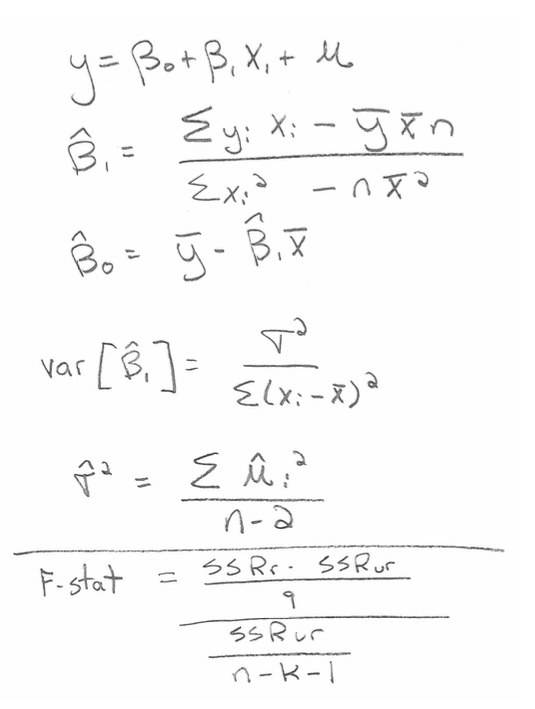 y = β₀ + β₁ X₁ + u
β̂₁ = (Σ yᵢ xᵢ − ȳ x̄ n) / (Σ xᵢ² − n x̄²)
β̂₀ = ȳ - β̂₁ x̄
var [β̂₁] = σ² / Σ(xᵢ − x̄)²
σ̂² = Σ ûᵢ² / (n−2)
F-stat = ((SSRr - SSRur) / q) / (SSRur / (n−k−1))